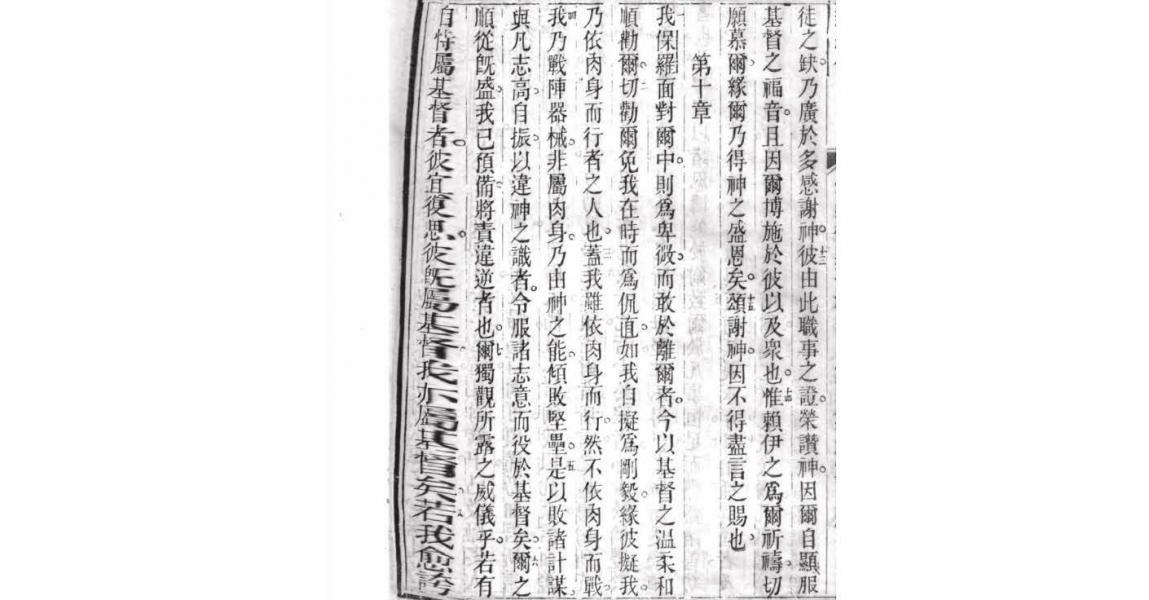 徒之缺。乃廣於多感謝神。十三彼由此職事之證。榮讚神。因爾自顯服
基督之福音。且因爾博施於彼以及眾也。十四惟賴伊之爲爾祈禱。切
願慕爾。緣爾乃得神之盛恩矣。十五頌謝神。因不得盡言之賜也。
第十章
我保羅面對爾中。則爲卑微。而敢於離爾者。今以基督之温柔和
順勸爾。二切勸爾免我在時而爲侃直。如我自擬爲剛毅。緣彼擬我
乃依肉身而行者之人也。三蓋我雖依肉身而行。然不依肉身而戰。
四我乃戰陣器械。非屬肉身。乃由神之能。傾敗堅壘。五是以敗諸計謀
與凡志高自振。以違神之識者。令服諸志意而役於基督矣。六爾之
順從既盛。我已預備將責違逆者也。七爾獨觀所露之威儀乎。若有
自恃屬基督者。彼宜復思。彼既屬基督。我亦屬基督矣。八若我愈誇